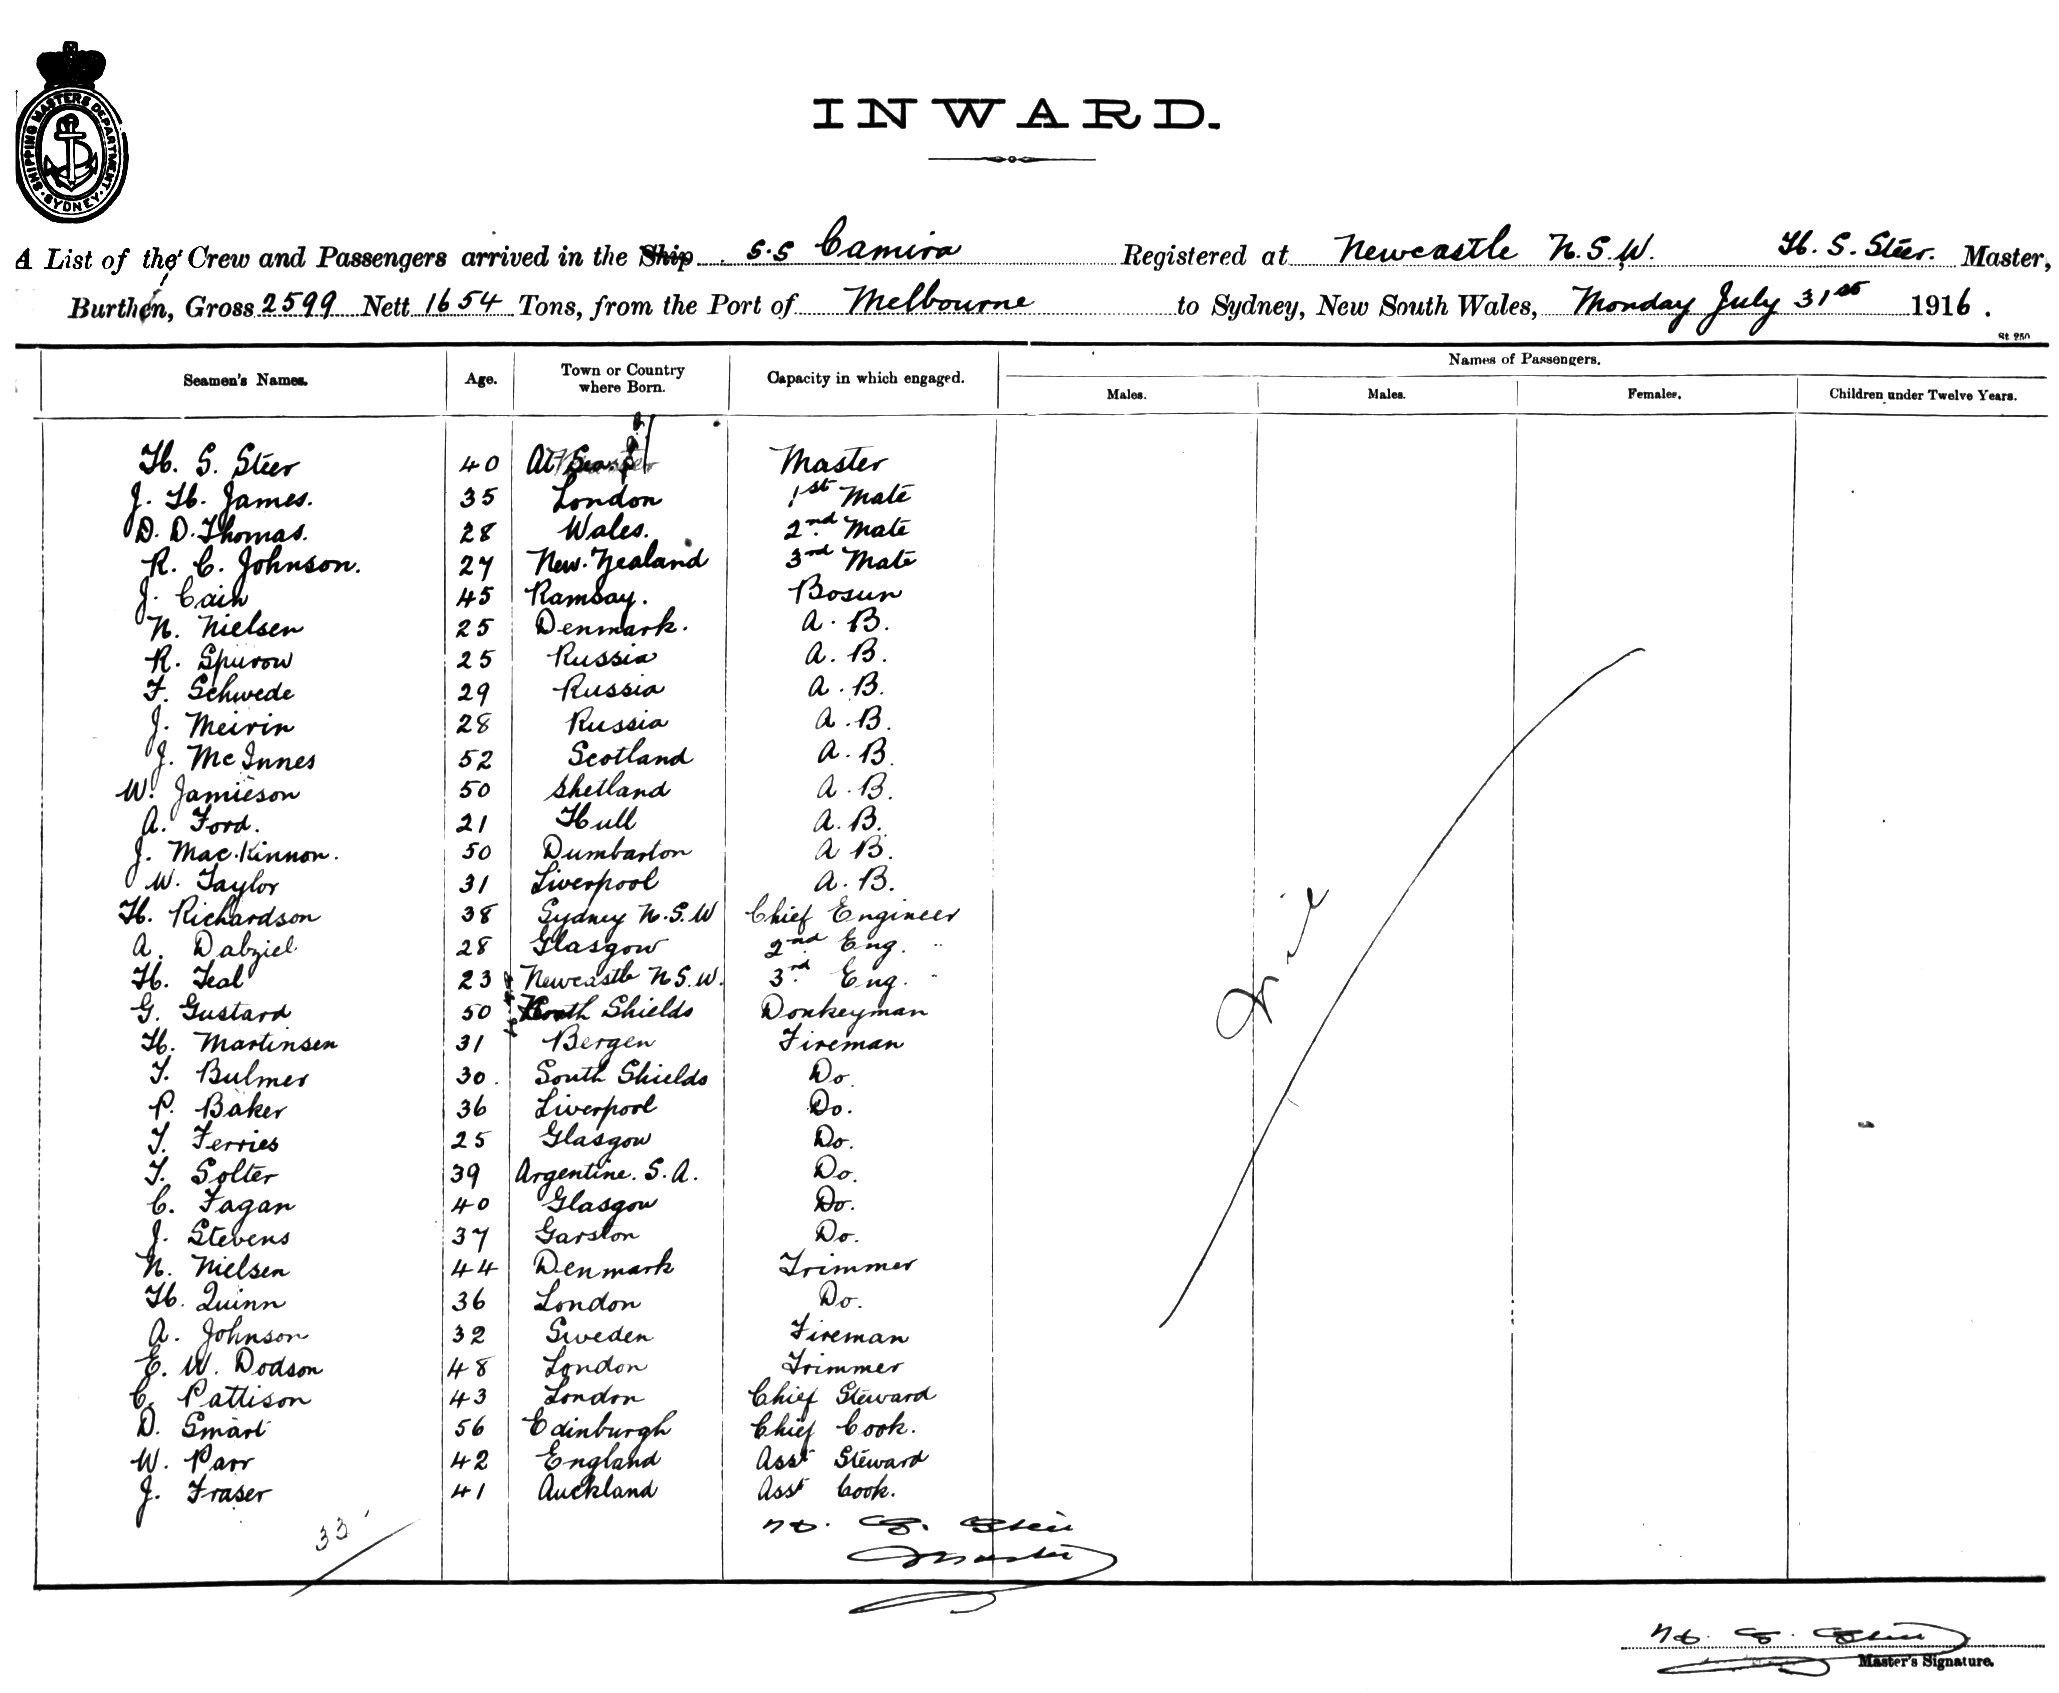 SHIPPING MASTERS DEPARTMENT · SYDNEY ·
INWARD.
A List of the Crew and Passengers arrived in the Ship S.S Camira Registered at Newcastle N.S.W. H. S. Steer. Master,
Burthen, Gross 2599 Nett 1654 Tons, from the Port of Melbourne to Sydney, New South Wales, Monday July 31st 1916.
St 250
Names of Passengers.
Seamen's Names. Age. Town or Country where Born. Capacity in which engaged. Males. Males. Females. Children under Twelve Years.
H. S. Steer 40 At Sea. Master
J. H. James. 35 London 1st Mate
D. D. Thomas. 28 Wales. 2nd Mate
R. C. Johnson. 27 New Zealand 3rd Mate
J. Cain 45 Ramsay. Bosun
N. Nielsen 25 Denmark. A. B.
R. Spurow 25 Russia A. B.
F. Schwede 29 Russia A. B.
J. Meirin 28 Russia A. B.
J. McInnes 52 Scotland A. B.
W. Jamieson 50 Shetland A. B.
A. Ford. 21 Hull A. B.
J. MacKinnon. 50 Dumbarton A B.
W. Taylor 31 Liverpool A. B.
H. Richardson 38 Sydney N.S.W Chief Engineer
A. Dalziel 28 Glasgow 2nd Eng. "
H. Teal 23 Newcastle N.S.W. 3rd Eng. "
G. Gustard 50 North Shields Donkeyman
H. Martinsen 31 Bergen Fireman
T. Bulmer 30. South Shields Do.
P. Baker 36 Liverpool Do.
T. Ferries 25 Glasgow Do.
T. Solter 39 Argentine. S. A. Do.
C. Fagan 40 Glasgow Do.
J. Stevens 37 Garston Do.
N. Nielsen 44 Denmark Trimmer
H. Quinn 36 London Do.
A. Johnson 32 Sweden Fireman
E. W. Dodson 48 London Trimmer
C. Pattison 43 London Chief Steward
D. Smart 56 Edinburgh Chief Cook.
W. Parr 42 England Asst Steward
J. Fraser 41 Auckland Asst Cook.
Nil
33
H. S. Steer
Master
H. S. Steer
Master's Signature.